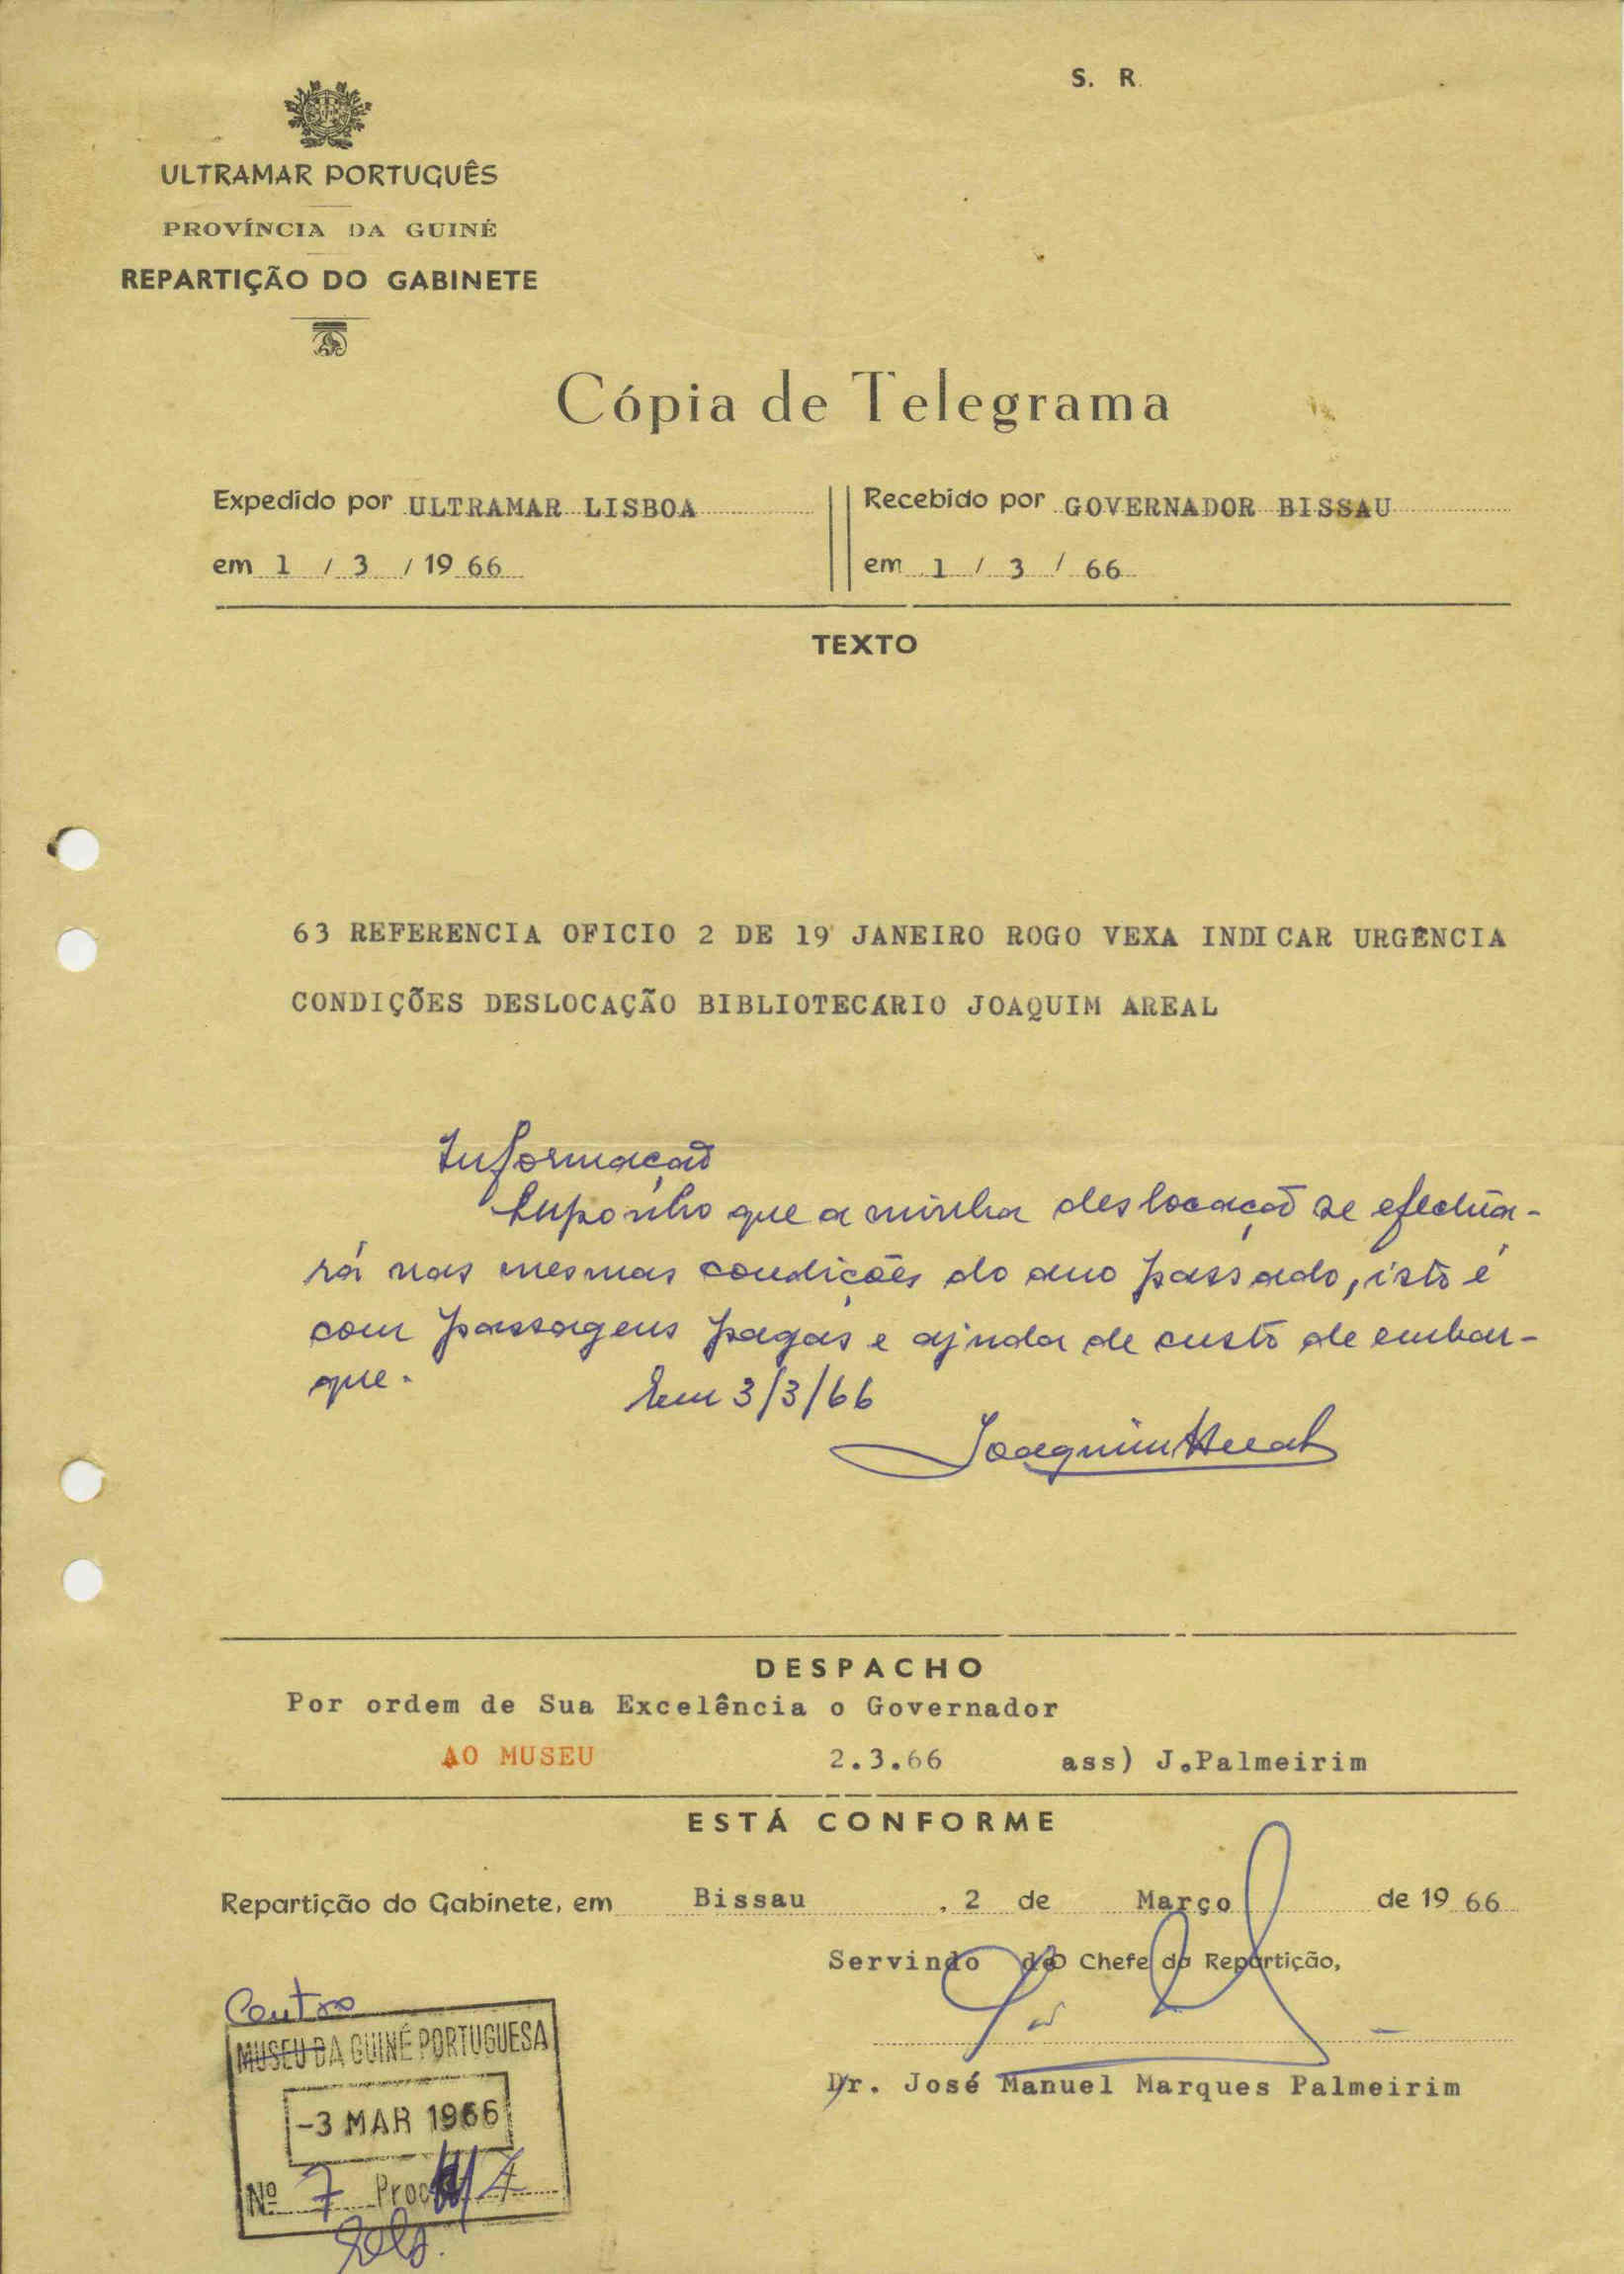 S. R.
ULTRAMAR PORTUGUÊS
PROVÍNCIA DA GUINÉ
REPARTIÇÃO DO GABINETE
Cópia de Telegrama
Expedido por ULTRAMAR LISBOA
em 1 / 3 / 19 66
Recebido por GOVERNADOR BISSAU
em 1 / 3 / 66
TEXTO
63 REFERENCIA OFICIO 2 DE 19 JANEIRO ROGO VEXA INDICAR URGÊNCIA
CONDIÇÕES DESLOCAÇÃO BIBLIOTECÁRIO JOAQUIM AREAL
Informação
Suponho que a minha deslocação se efectua-
rá nas mesmas condições do ano passado, isto é
com passagens pagas e ajuda de custo de embar-
que.
Em 3/3/66
Joaquim Areal
DESPACHO
Por ordem de Sua Excelência o Governador
AO MUSEU 2.3.66 ass) J.Palmeirim
ESTÁ CONFORME
Repartição do Gabinete, em Bissau, 2 de Março de 19 66
Servindo de O Chefe da Repartição,
Dr. José Manuel Marques Palmeirim
Centro
MUSEU DA GUINÉ PORTUGUESA
-3 MAR 1966
Nº 7 Proc